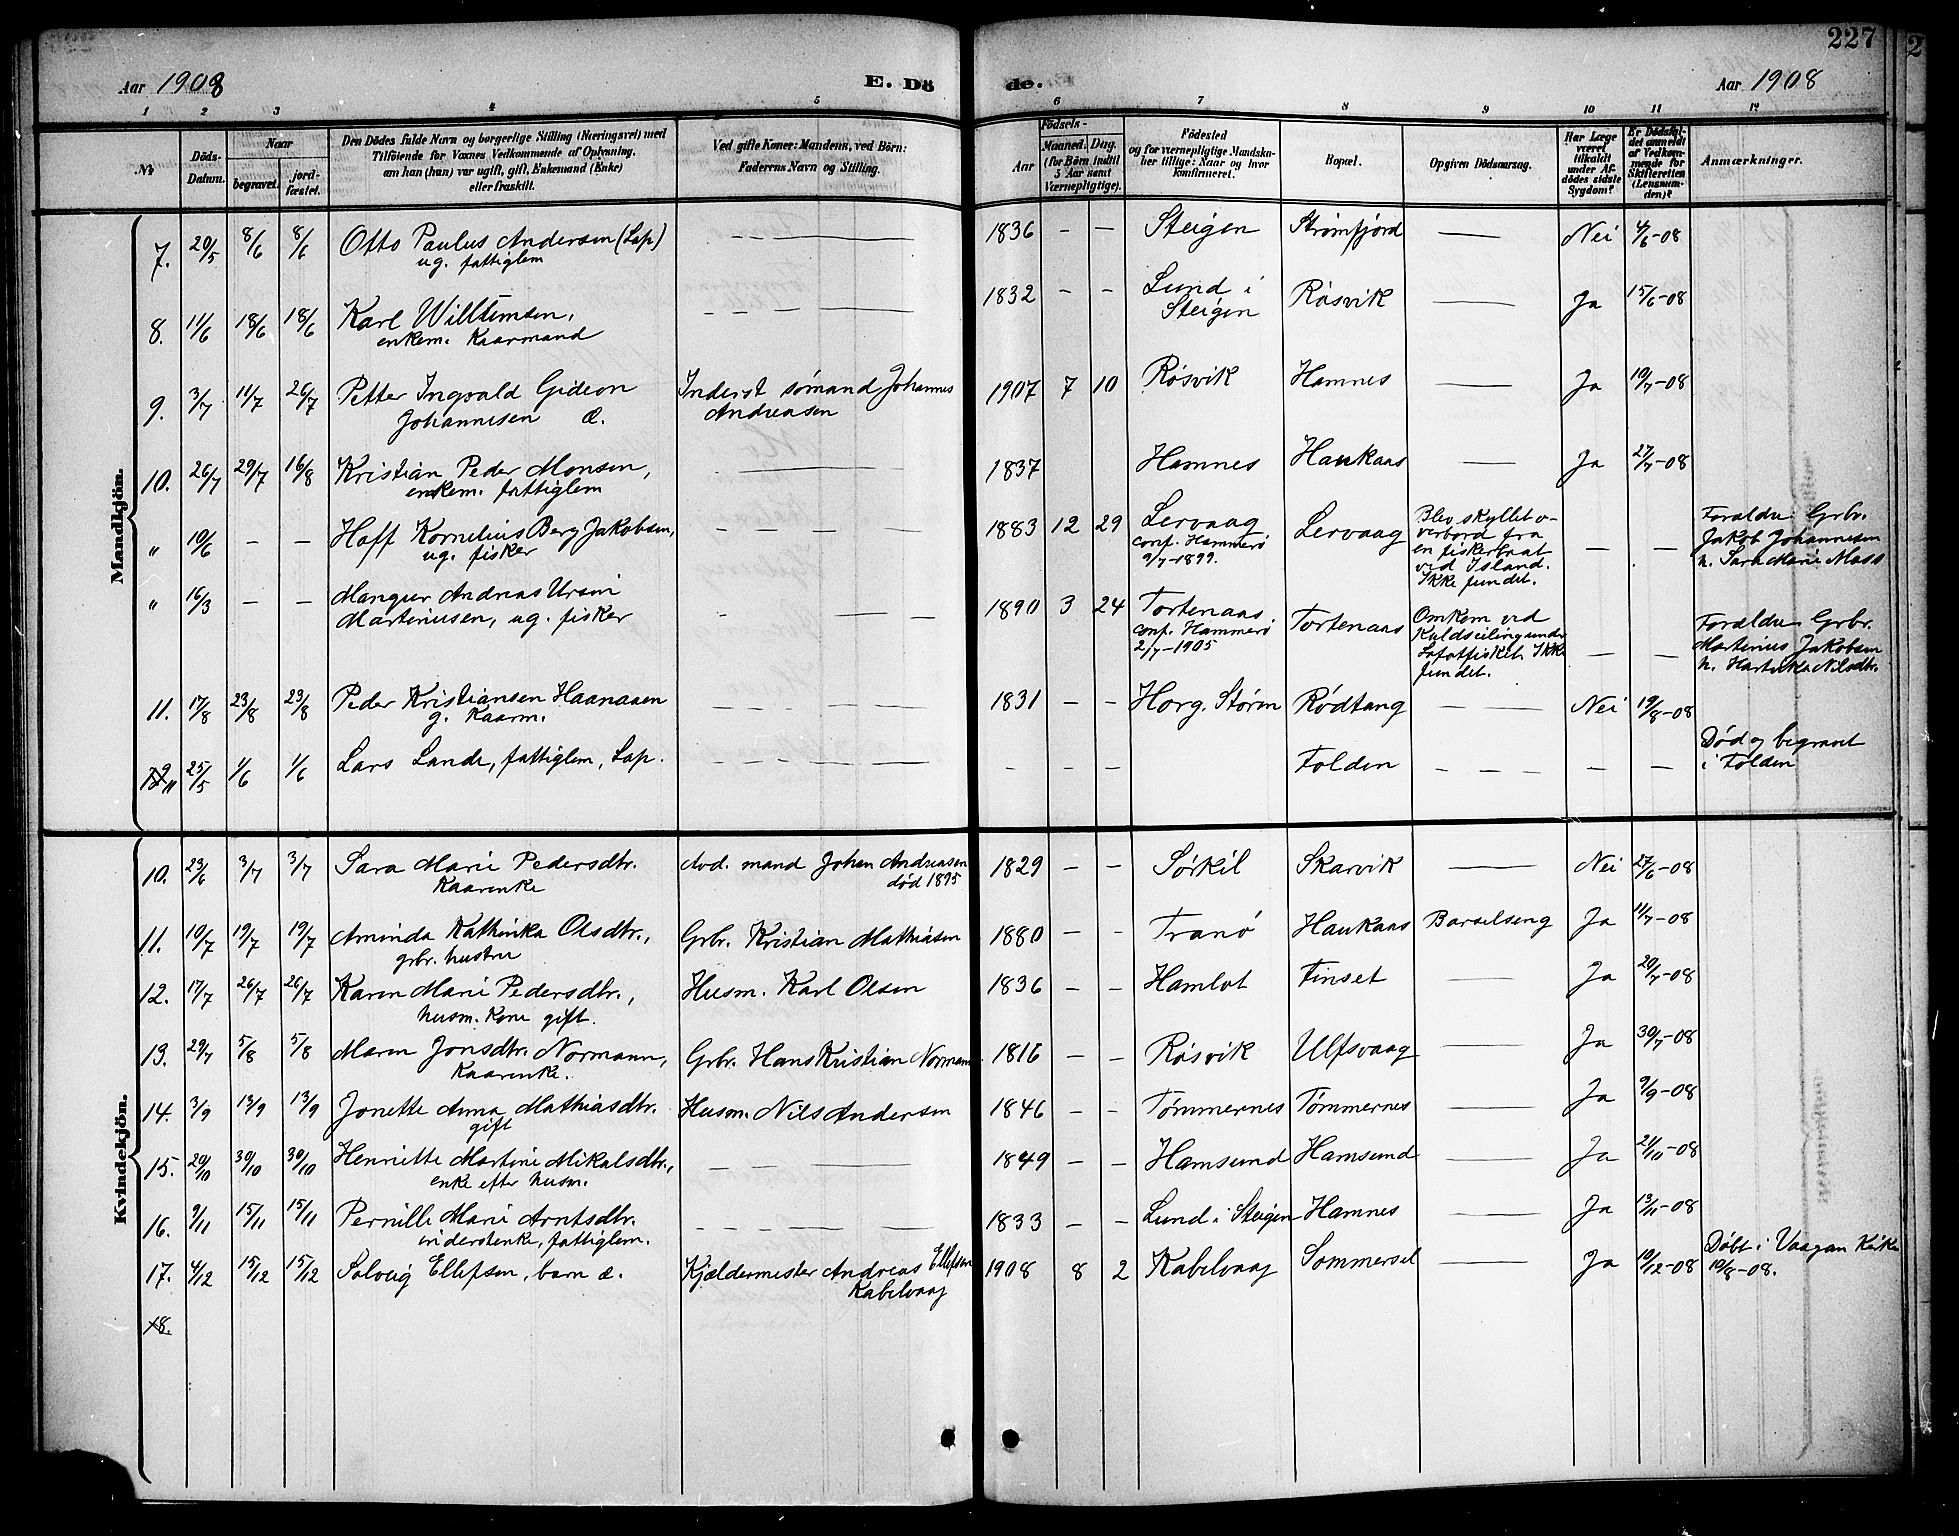 227
Aar 1908 E. Dö de. Aar 1908
1 2 3 4 5 6 7 8 9 10 11 12
No. Döds-Datum. Naar begravet. jordfæstet. Den Dödes fulde Navn og borgerlige Stilling (Næringsvei) med Tilföiende for Voxnes Vedkommende af Oplysning, om han (hun) var ugift, gift, Enkemand (Enke) eller fraskilt. Ved gifte Koner: Mandens, ved Börn: Faderens Navn og Stilling. Födsels- Aar Maaned. Dag. (for Börn indtil 5 Aar samt Værnepligtige). Födested og for værnepligtige Mandskaber tillige: Naar og hvor konfirmeret. Bopæl. Opgiven Dödsaarsag. Har Læge været tilkaldt under Afdödes sidste Sygdom? Er Dödsfaldet anmeldt af Vedkommende for Skifteretten (Lensmanden)? Anmærkninger.
Mandkjön.
7. 20/5 8/6 8/6 Otto Paulus Andersen (Lap) — — — 1836 – – Steigen Strømfjord — Nei 4/6-08
ug. fattiglem
8. 11/6 18/6 18/6 Karl Willumsen, — — — 1832 – – Lund i Steigen Røsvik — Ja 15/6-08
enkem. Kaarmand
9. 3/7 11/7 26/7 Petter Ingvald Gideon Inderst sømand Johannes 1907 7 10 Røsvik Hamnes — Ja 10/7-08
Johannesen æ. Andreasen
10. 26/7 29/7 16/8 Kristian Peder Monsen, — 1837 Hamnes Haukaas — Ja 27/7-08
enkem. fattiglem
" 10/6 – – Hoff Kornelius Berg Jakobsen, – – – 1883 12 29 Lervaag Lervaag Blev skyllet o- — — Forældre: Grbr.
ug. fisker conf. Hammerø verbord fra Jakob Johannesen
9/7-1899. en fiskerbaat h. Sara Marie Mass
vid Island.
Ikke fundet.
" 16/3 – – Mangur Andreas Ursin – — – 1890 3 24 Tortenaas Tortenaas Omkom ved — — Forældre Grbr.
Martinusen, ug. fisker conf. Hammerø Kuldseiling under Martinus Jakobsen
2/7-1905 Lofotfisket. Ikke h. Nilsdtr.
fundet.
11. 17/8 23/8 23/8 Peder Kristiansen Haanaasen — — — 1831 – – Horg. Støren Rødtang — — Nei 19/8-08
g. Kaarm.
" 25/5 1/6 1/6 Lars Lande, fattiglem, Lap. — — — – – – Folden — — — — — Død og begravet
i Folden
Kvindekjön.
10. 23/6 3/7 3/7 Sara Marie Pedersdtr. Avd. mand Johan Andreasen 1829 – – Sørkil Skarvik — Nei 27/6-08
Kaarenke død 1895
11. 10/7 19/7 19/7 Aminda Kathinka Olsdtr., Grbr. Kristian Mathiasen 1880 – – Tranø Haukaas Barselseng Ja 11/7-08
grbr. hustru
12. 17/7 26/7 26/7 Karen Marie Pedersdtr., Husm. Karl Olsen 1836 – – Hamlot Finset — Ja 20/7-08
husm. kone gift.
13. 29/7 5/8 5/8 Maren Jonsdtr. Normann, Grbr. Hans Kristian Normann 1816 – – Røsvik Ulfsvaag — Ja 30/7-08
Kaarenke.
14. 3/9 13/9 13/9 Jonette Anna Mathiasdtr. Husm. Nils Andersen 1846 – – Tømmernes Tømmernes — Ja 9/9-08
gift
15. 20/10 30/10 30/10 Henriette Martine Mikalsdtr., – – — — 1849 – – Hamsund Hamsund — Ja 21/10-08
enke efter husm.
16. 9/11 15/11 15/11 Pernille Marie Arntsdtr. — — — 1833 – – Lund i Steigen Hamnes — Ja 13/11-08
inderstenke, fattiglem.
17. 4/12 15/12 15/12 Solveig Ellefsen, barn æ. Kjældermester Andreas Ellefsen 1908 8 2 Kabelvaag Sommersel — Ja 10/12-08 Døbt i Vaagan Kirke
Kabelvaag 19/8-08.
18.